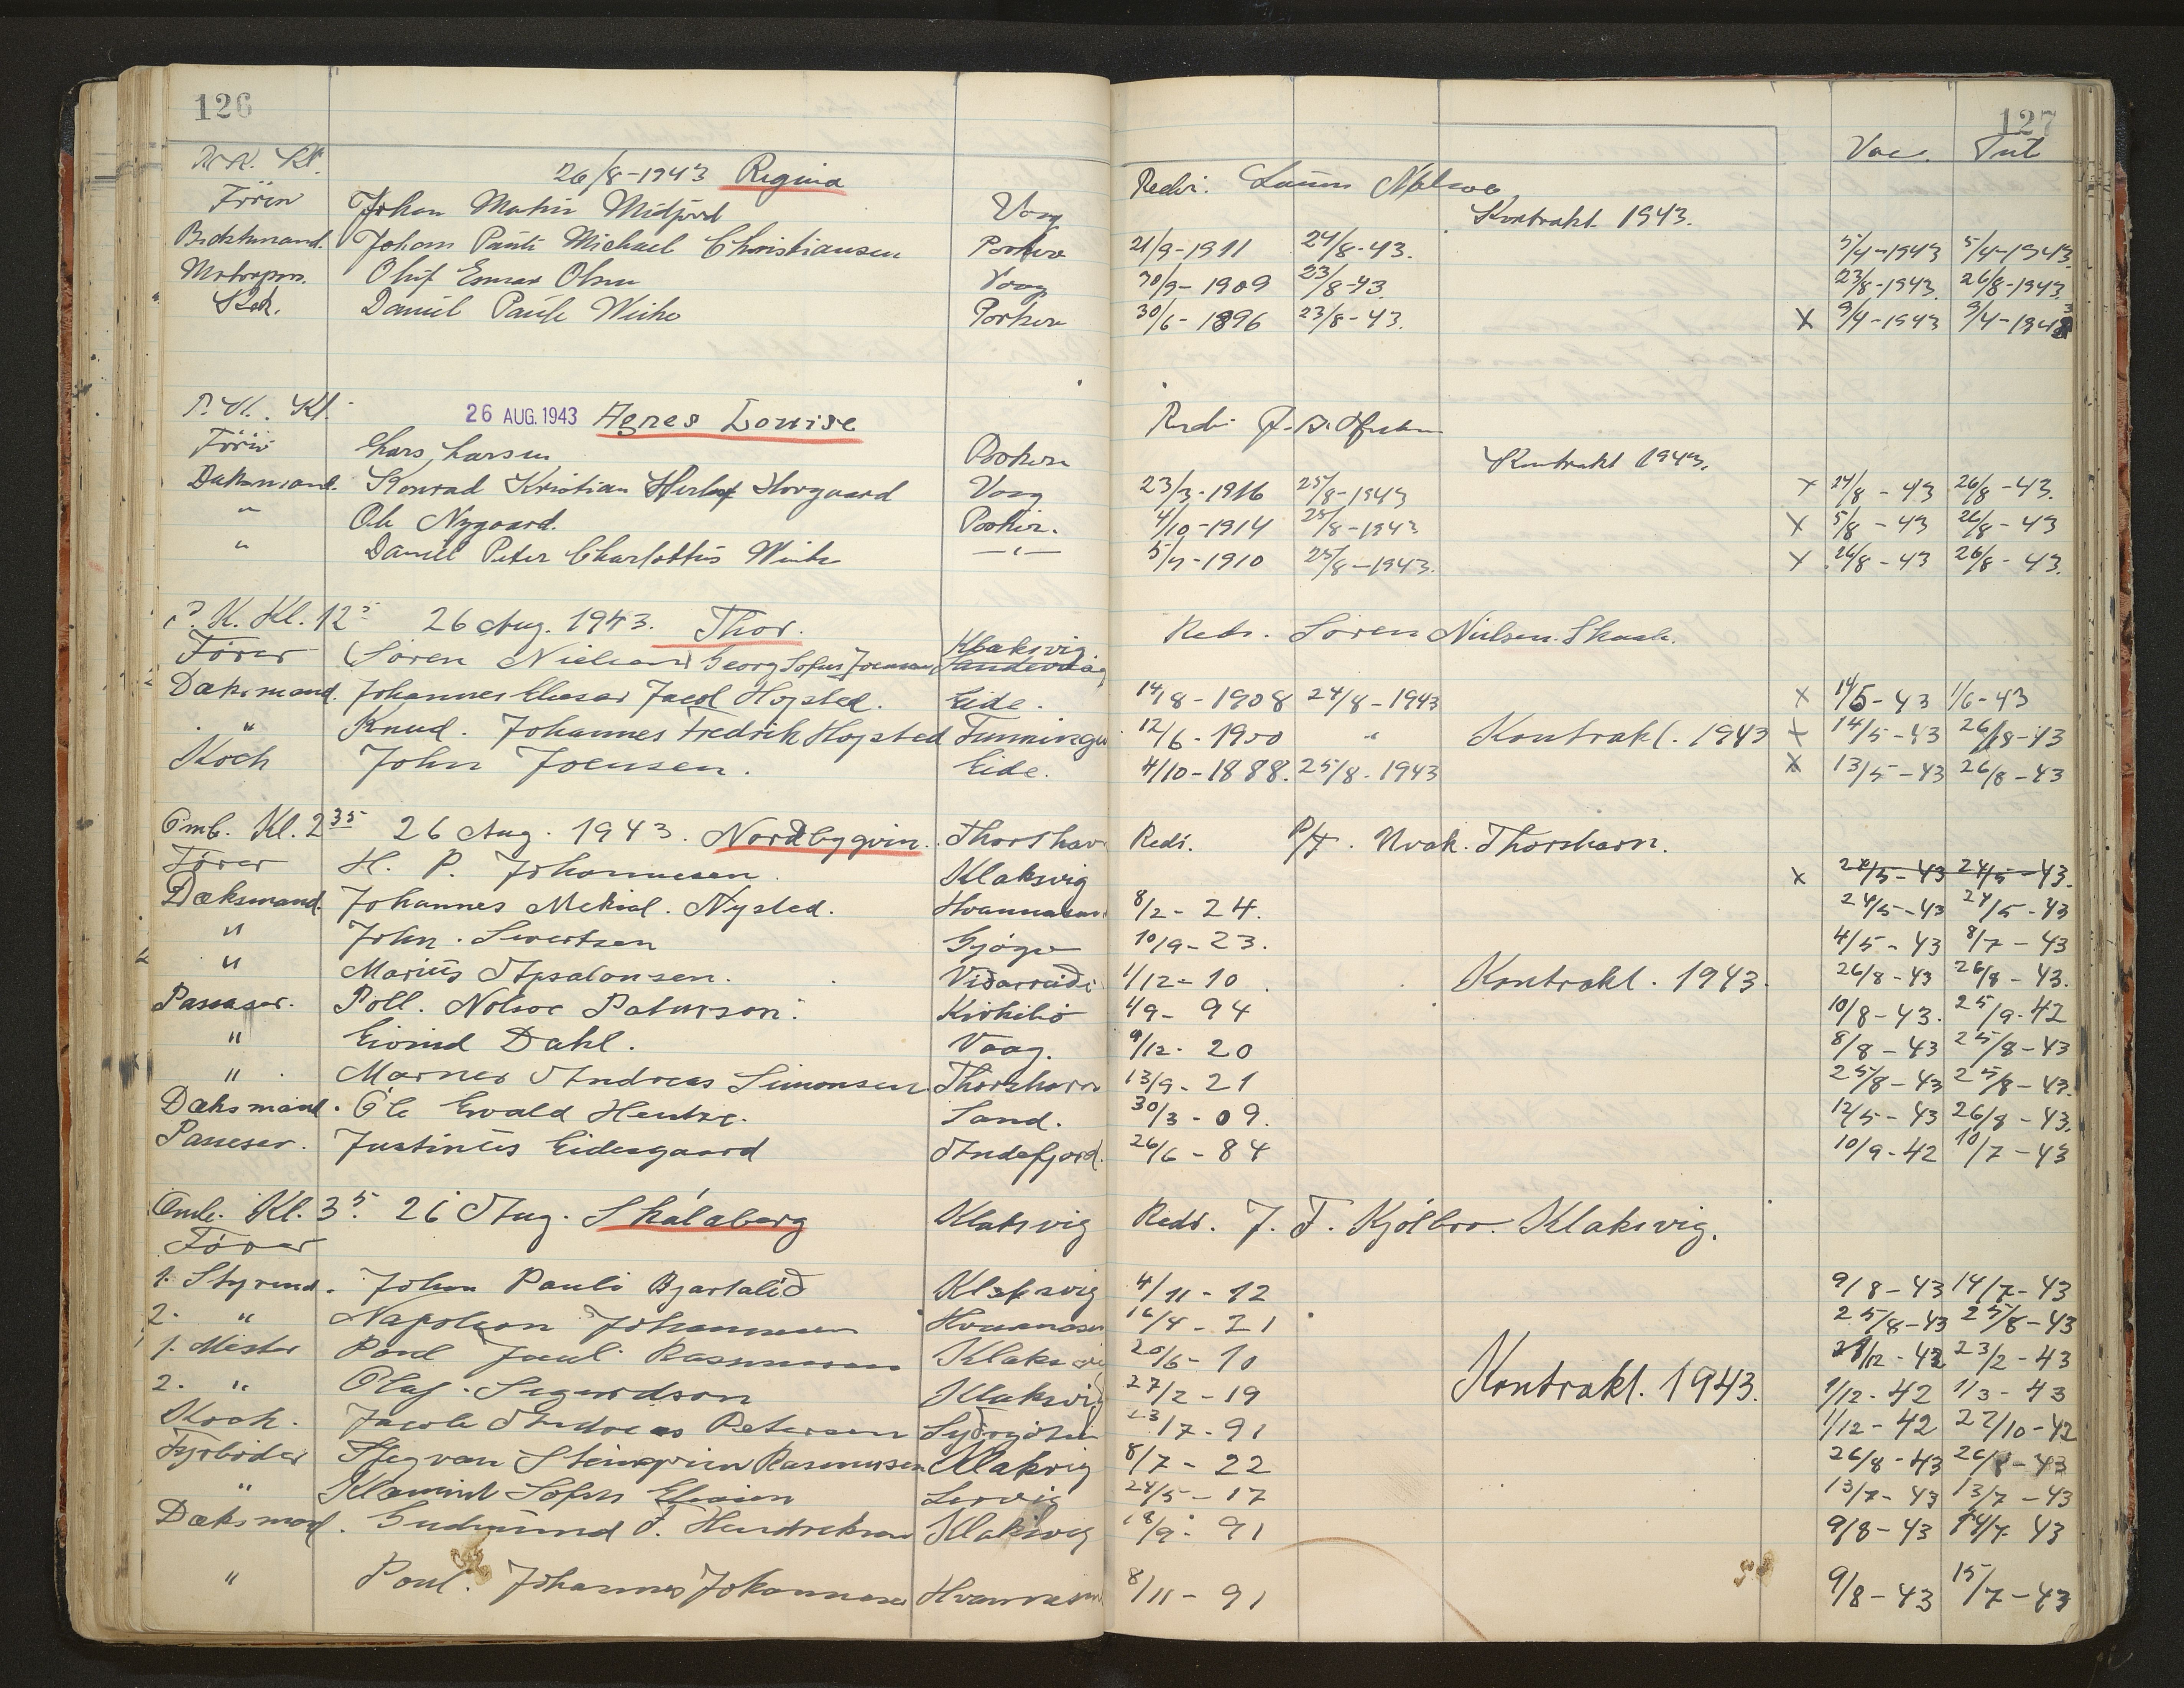 126
127
Vac. Tub
Kl. 26/8-1943 Regina Redri.
Johan Martin Midjord Vaag Kontrakt 1943.
Johan Pauli Michael Christiansen Porkere 21/9-1911 24/8-43. 5/4-1943 5/4-1943
Oluf Esmar Olsen Vaag 30/9-1909 23/8-43. 23/8-1943. 26/8-1943.
Kok. Daniel Paule Weihe Porkere 30/6-1896 23/8-43. X 9/4-1943 9/4-1943
Kl. 26 AUG. 1943 Agnes Louise
Lars Larsen Porkere Kontrakt 1943.
Daksmand. Konrad Kristian Horgaard Vaag 23/3-1916 25/8-1943 X 24/8-43 26/8-43.
" Ole Nygaard. Porker. 4/10-1914 25/8-1943 X 5/8-43 26/8-43
" Daniel Peter Charlottus Weihe —"— 5/7-1910 25/8-1943. X 26/8-43 26/8-43.
P. K. Kl. 12 26 Aug. 1943. Thor. Redr. Sören Nielsen. Skaale.
Förer (Sören Nielsen) Georg Sofus Joensen, Klaksvig Sandevaag
Dæksmand. Johannes Eliesar Jacob Højsted. Eide. 14/8-1908 24/8-1943 X 14/5-43 1/6-43
" Knud. Johannes Fredrik Højsted Funningu 12/6-1900 " Kontrakt. 1943 X 14/5-43 26/8-43
Koch John Joensen. Eide. 4/10-1888. 25/8-1943 X 13/5-43 26/8-43
Omb. Kl. 2 35 26 Aug. 1943. Nordbygvin. Thorshav Redr. P/F. Nvak. Thorshavn.
Förer H. P. Johannesen. Klaksvig X 24/5-43 24/5-43.
Dæksmand. Johannes Mekial. Nysted. Hvannasun 8/2-24. 24/5-43 24/5-43
" John. Sivertsen Gjógv 10/9-23. 4/5-43 8/7-43
" Marius Absalonsen. Viðareiði 1/12-10. Kontrakt. 1943. 26/8-43 26/8-43.
Passaser. Poll. Nolsoe Patursson. Kirkibö 4/9-94 10/8-43. 25/9-42
" Eivind Dahl. Vaag. 9/12-20 8/8-43 25/8-43
" Marner Andreas Simonsen Thorshavn 13/9-21 25/8-43 25/8-43.
Dæksmand. Ole Ewald Hentze. Sand. 30/3-09. 12/5-43 26/8-43.
Passeser. Justinus Eidesgaard Andefjord. 26/6-84 10/9-42 10/7-43
Omb. Kl. 3 5. 26 Aug. Skálaberg Klaksvig Redr. J. F. Kjölbro. Klaksvig.
Förer
1. Styrmd. Johan Pauli Bjartalíð Klaksvig 4/11-12 9/8-43 14/7-43
2. " Napoleon Johannesen Hvannasun 16/4-21 25/8-43 25/8-43
1. Mester Poul Juul Rasmussen Klaksvi 20/6-10 12-42 23/2-43
2. " Olaf. Sigurdson Klaksvig 27/2-19 Kontrakt. 1943. 1/12-42 1/3-43
Kock. Jacob Andreas Petersen 23/7-91 1/12-42 27/10-42
Fyrböder Rasmussen Klaksvig 8/7-22 26/8-43 26/8-43
" Klæmint Sofus Lervig 24/5-17 13/7-43 13/7-43
Dæksmand. Gudmund F. Hendreksen Klaksvig 18/9-91 9/8-43 14/7-43
" Poul. Johannes Johannesen Hvannasun 8/11-91 9/8-43 15/7-43